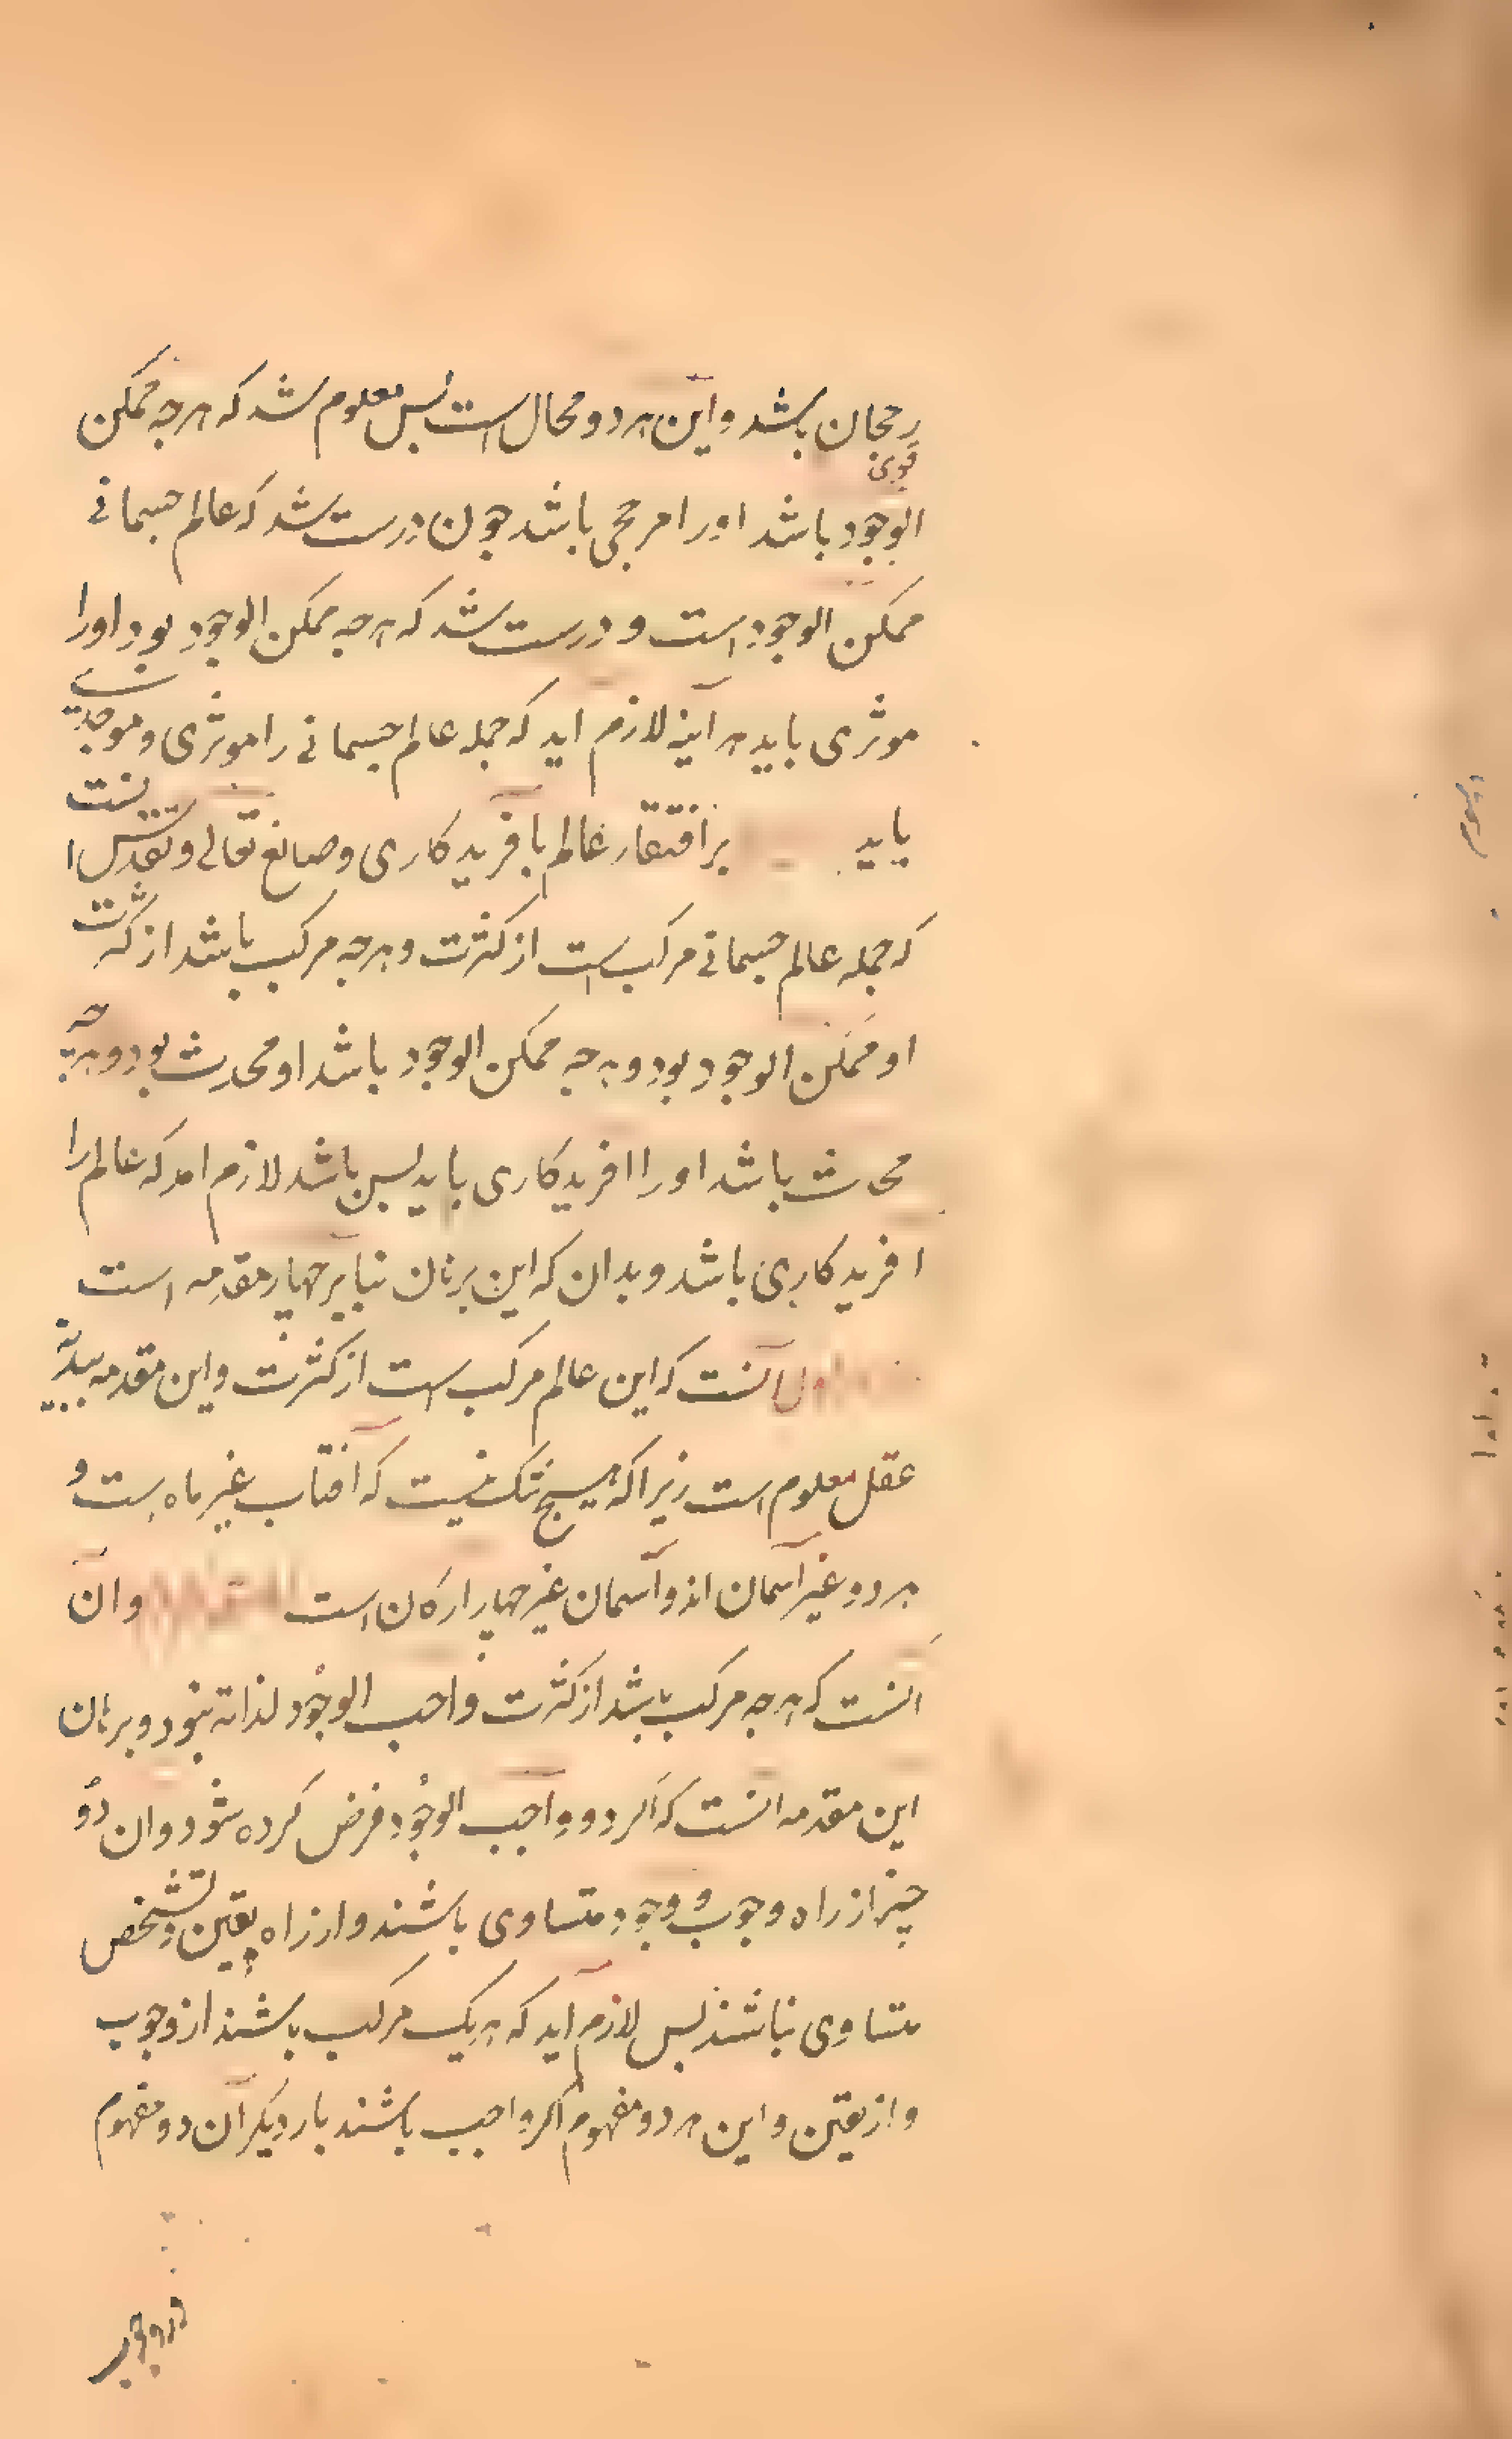 رجحان باشد و این هر دو محال است پس معلوم شد که هرجه ممکن
الوجود باشد اورا مرجحی باشد جون درست شد که عالم جسمانی
ممکن الوجود است و درست شد که هرجه ممکن الوجود بود اورا
موثری باید هرآینه لازم اید که جمله عالم جسمانی را موثری و موجدی
باید بر افتقار عالم بآفریدکاری وصانع تعالی وتقدس انست
که جمله عالم جسمانی مرکب است از کثرت و هرجه مرکب باشد از کثرت
او ممکن الوجود بود و هرجه ممکن الوجود باشد او محدث بود و هرجه
محدث باشد اورا افریدکاری باید پس باشد لازم امد که عالم را
افریدکاری باشد و بدان که این برهان بنا بر جهار مقدمه است
آنست که این عالم مرکب است از کثرت و این مقدمه ببدیهه
عقل معلوم است زیرا که هیج شک نیست که آفتاب غیر ماه است و
هر دو غیر آسمان اند و آسمان غیر جهار ارکان است و آن
آنست که هرجه مرکب باشد از کثرت واجب الوجود لذاته نبود و برهان
این مقدمه انست که اکر دو واجب الوجود فرض کرده شود وان دو
چیز از راه وجوب وجود متساوی باشند و از راه تعین و تشخص
متساوی نباشند پس لازم آید که هر یک مرکب باشند از وجوب
و از تعین و این هر دو مفهوم اکر واجب باشند بار دیکر آن دو مفهوم